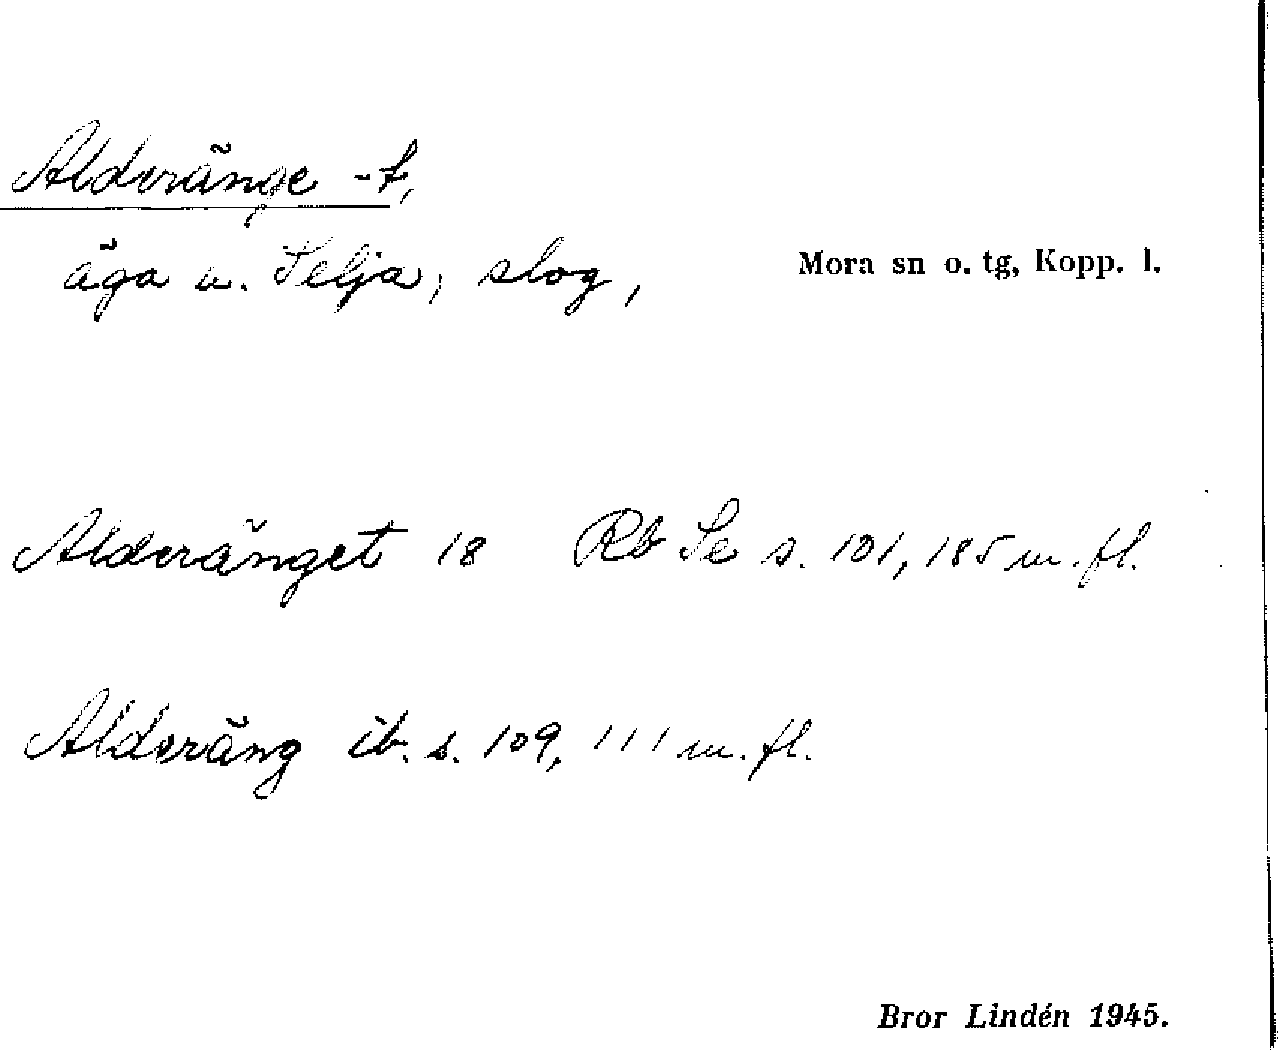 Alderänge -t,
äga u. Selja, slog,
Mora sn o. tg, Kopp. l.
Alderänget 18 Rb Se s. 101, 185 m. fl.
Alderäng ib. s. 109, 111 m. fl.
Bror Lindén 1945.